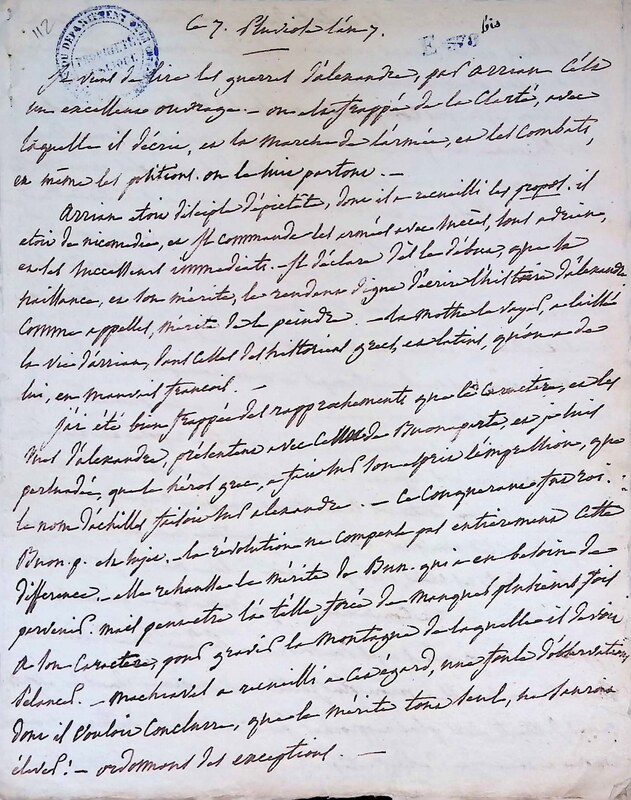 112
DU DEPARTEMENT
PROPRIETE
PUBLIQUE
Ce 7. Pluviose l'an 7.
E 378 bis
Je viens de lire les guerres d'alexandre, par arrian c'est
un excellent ouvrage. - on est frappé de la clarté, avec
laquelle il décrit, et la marche de l'armée, et les combats,
et même les positions. on le suit partout. -
Arrian etoit disciple d'épictète, dont il a recueilli les propos. il
etoit de nicomédie, et il commanda les armées avec succès, sous adrien,
et ses successeurs immédiats. - il déclare dès le début, que la
vaillance, et son mérite, le rendent digne d'écrire l'histoire d'alexandre
Comme appelles, mérita de le peindre. - La Mothe le vayer, a laissé
la vie d'arrian, dans celles des historiens grecs, et latins, qu'on a de
lui, en mauvais francois. -
j'ai été bien frappée des rapprochements que le caractère, et les
vues d'alexandre, présentent avec celles de Buonaparte, et je suis
persuadé, que le héros grec, a fait sur son esprit l'impression, que
le nom d'achille faisoit sur alexandre. - Ce conquerant fut roi.
Buon.p. est sujet. la révolution ne compense pas entierement cette
difference. - elle rehausse le mérite de Buon. qui a eu besoin de
parvenir. mais peut être l'a t'elle forcé de manquer plusieurs fois
a son caractère, pour gravir la montagne de laquelle il devoit
s'elancer. - Machiavel a recueilli a cet égard, une foule d'observations
dont il vouloit conclure, que le mérite tout seul, ne sauroit
élever! - ordonnons des exceptions. -